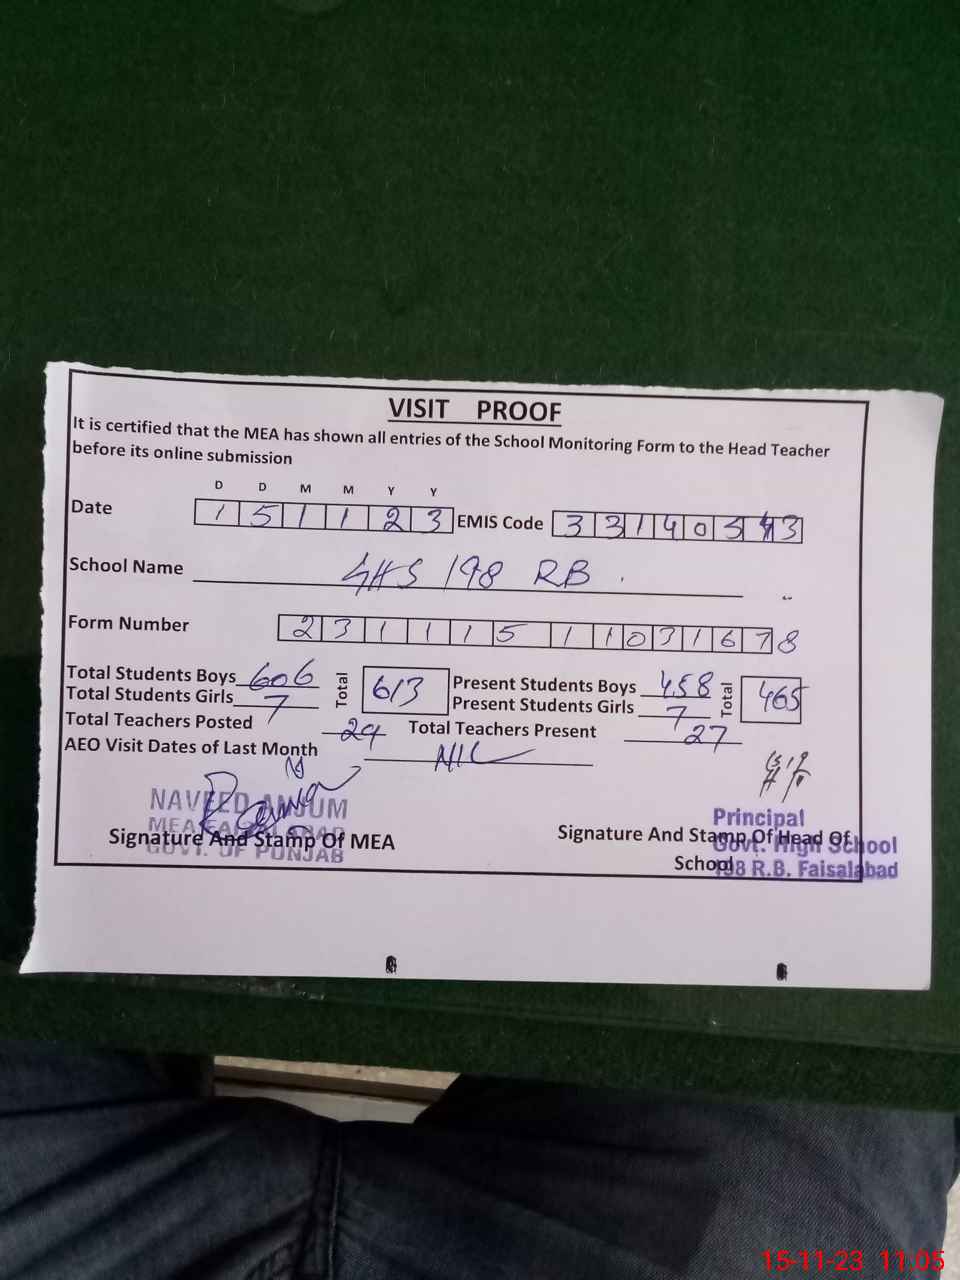 VISIT PROOF
It is certified that the MEA has shown all entries of the School Monitoring Form to the Head Teacher
before its online submission
D D M M Y Y
Date 1 5 1 1 2 3 EMIS Code 3 3 1 4 0 3
School Name GHS 198 RB .
Form Number 2 3 1 1 1 5 1 1 0 3 1 6 7 8
Total Students Boys 606 Total 613 Present Students Boys 458 Total 465
Total Students Girls 7 Present Students Girls 7
Total Teachers Posted 29 Total Teachers Present 27
AEO Visit Dates of Last Month NIL
NAVEED ANJUM
MEA FAISALABAD
GOVT. OF PUNJAB
Signature And Stamp Of MEA
Signature And Stamp Of Head Of
School
Principal
Govt. High School
198 R.B. Faisalabad
15-11-23 11:05